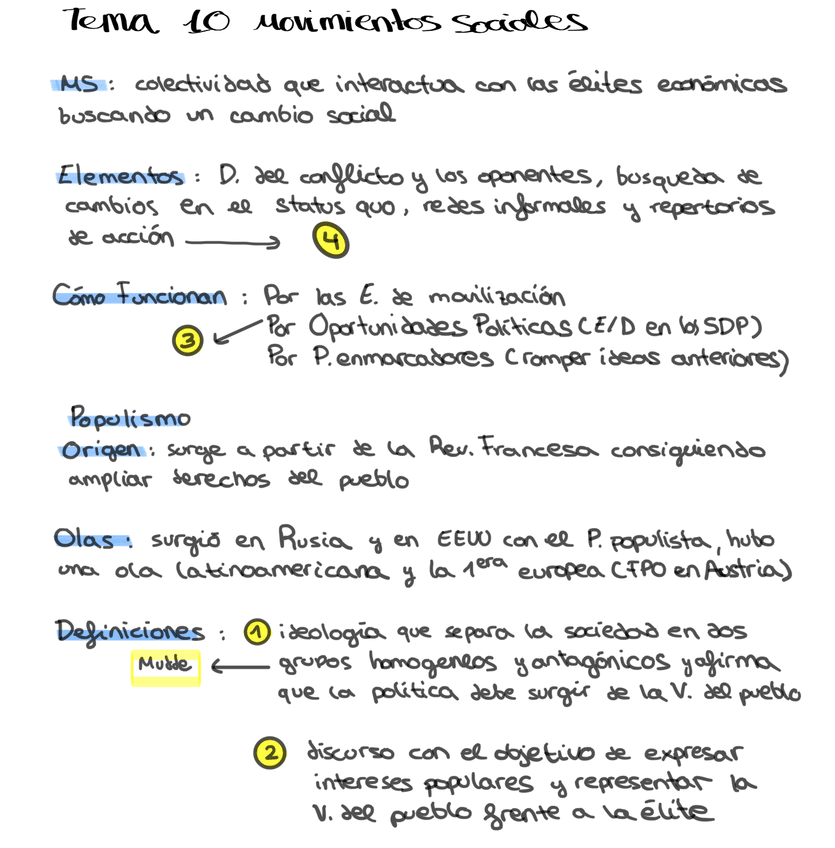 Tema 10 Movimientos Sociales
MS: colectividad que interactua con las élites económicas
buscando un cambio social
Elementos: D. del conflicto y los oponentes, busqueda de
cambios en el status quo, redes informales y repertorios
de acción → 4
Cómo Funcionan: Por las E. de movilización
3 ← Por Oportunidades Políticas (E/D en los SDP)
Por P. enmarcadores (romper ideas anteriores)
Populismo
Origen: surge a partir de la Rev. Francesa consiguiendo
ampliar derechos del pueblo
Olas: surgió en Rusia y en EEUU con el P. populista, hubo
una ola latinoamericana y la 1era europea (FPO en Austria)
Definiciones: 1 ideología que separa la sociedad en dos
Mudde ← grupos homogeneos y antagónicos y afirma
que la política debe surgir de la V. del pueblo
2 discurso con el objetivo de expresar
intereses populares y representar la
V. del pueblo frente a la élite